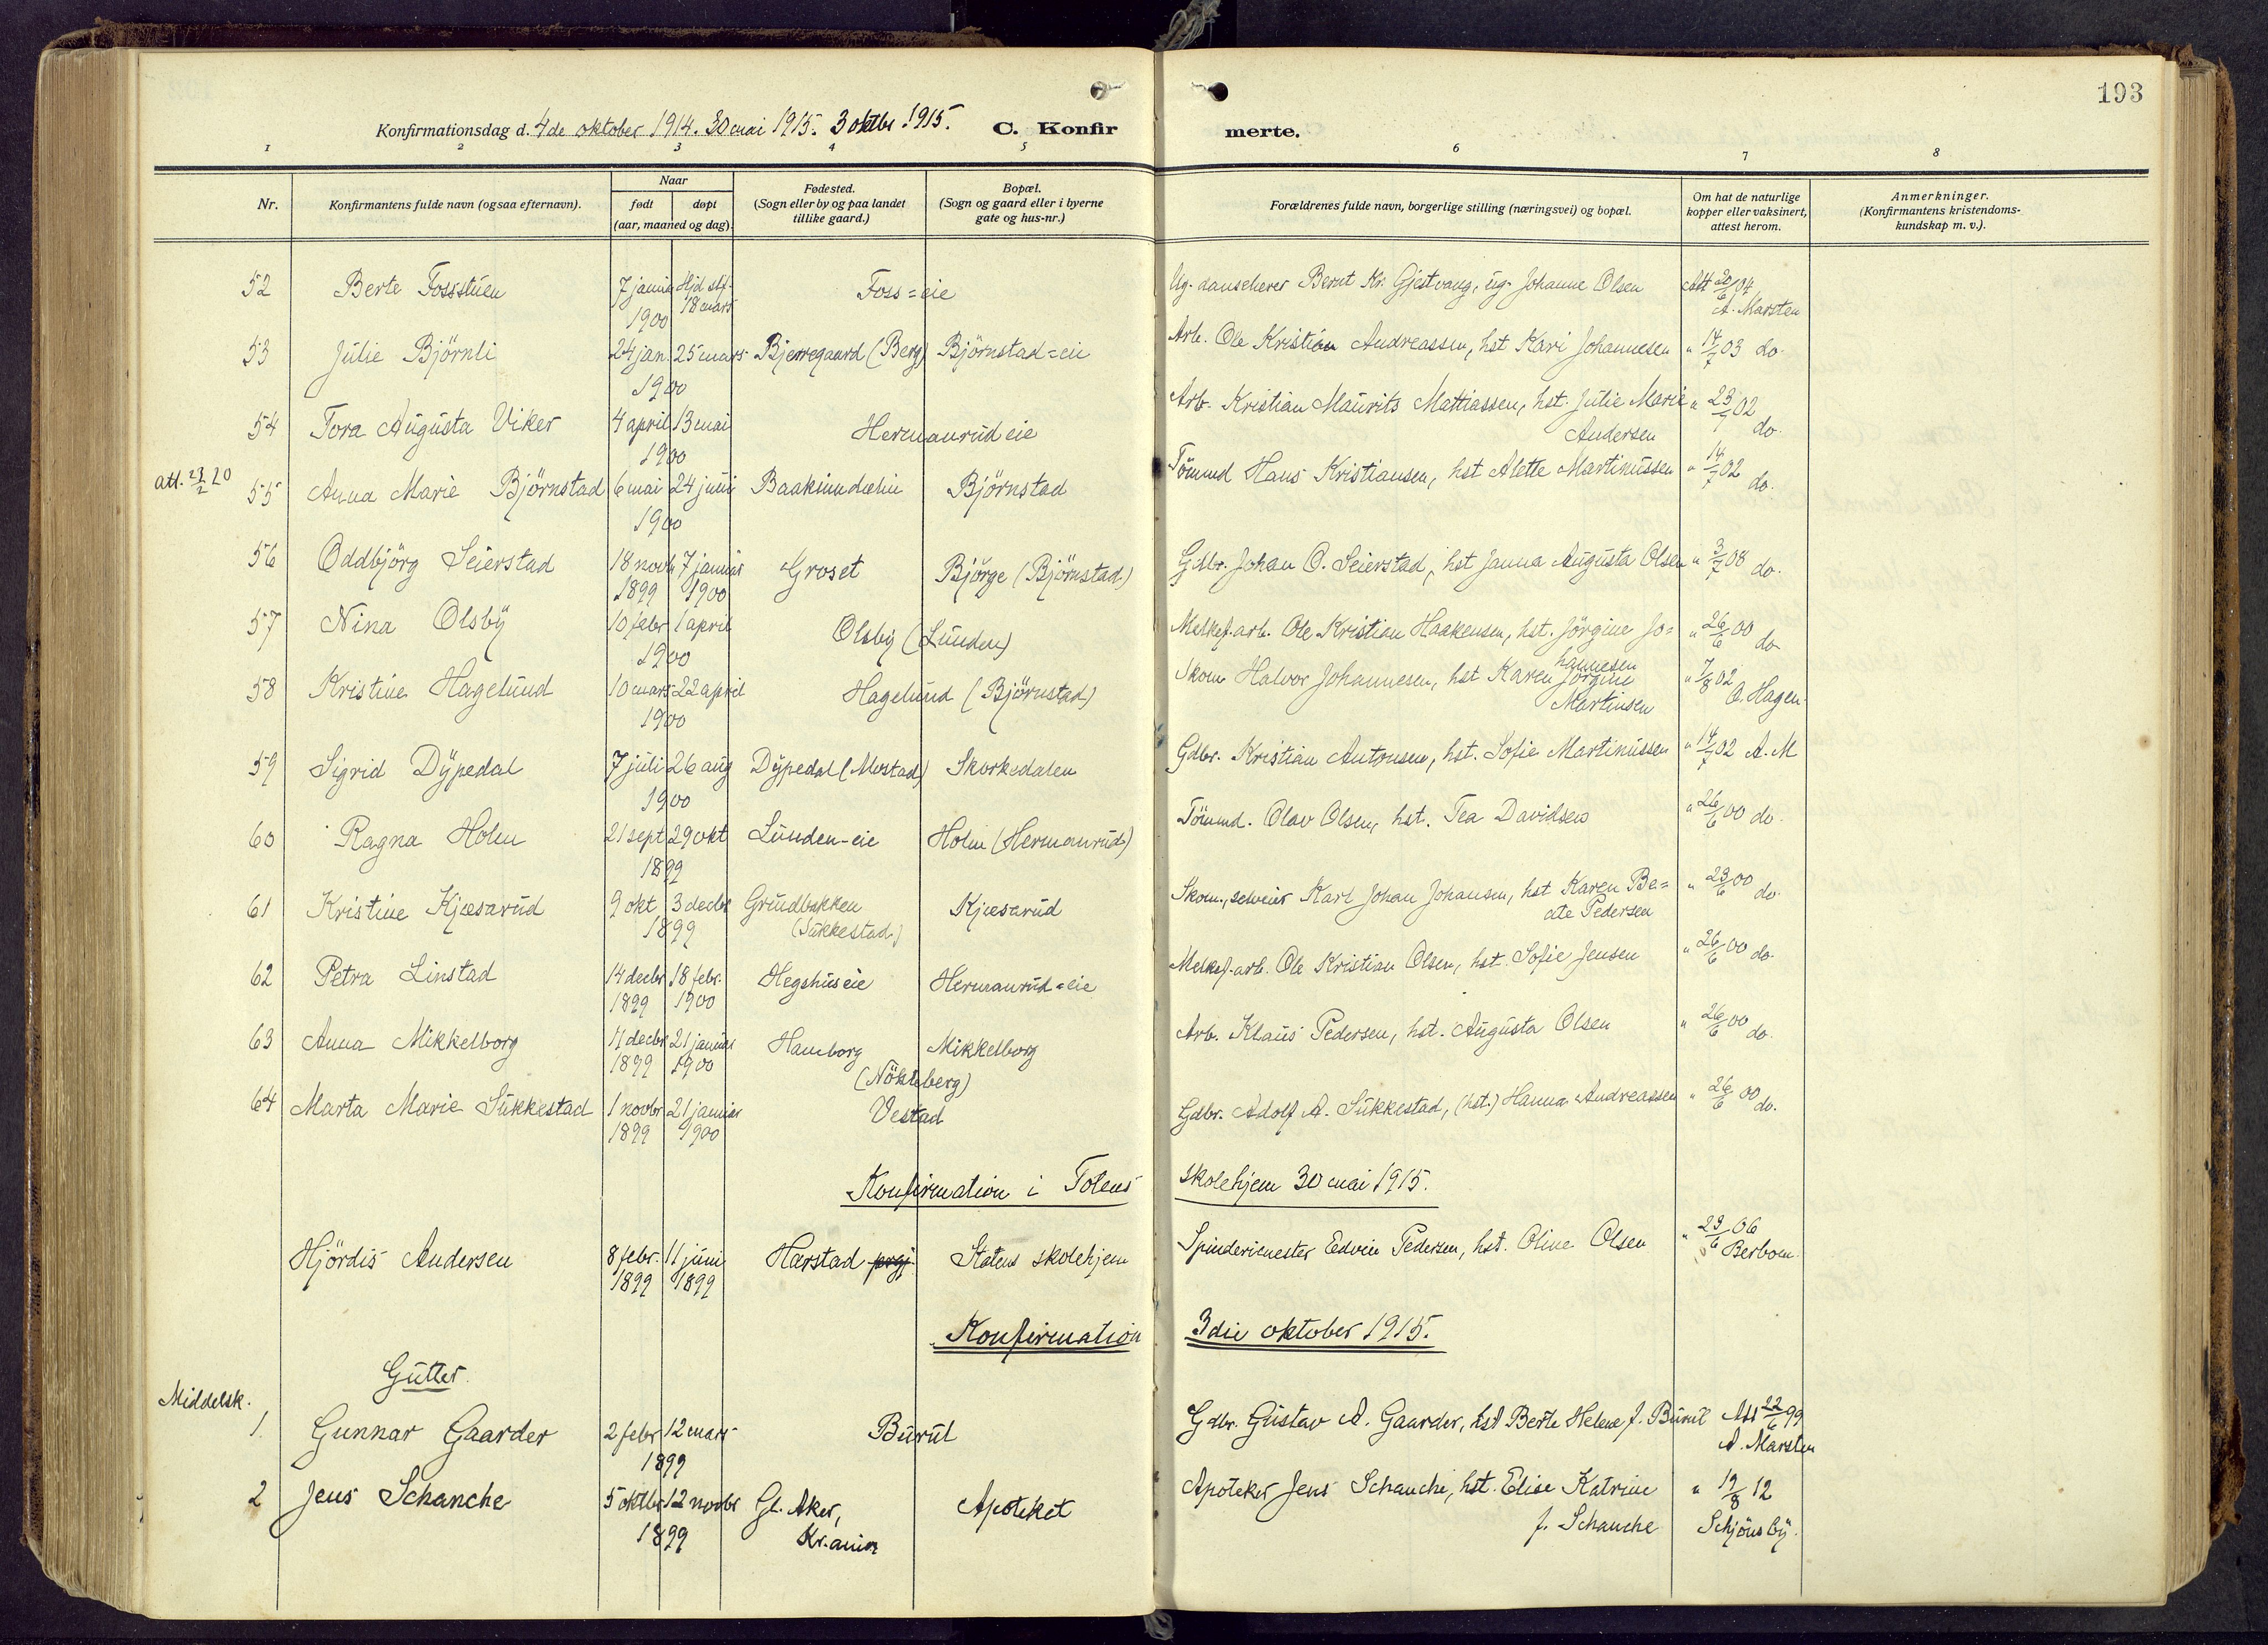 193
Konfirmationsdag d. 4de oktober 1914. 30 mai 1915. 3 oktbr. 1915. C. Konfirmerte.
1 2 3 4 5 6 7 8
Nr. Konfirmantens fulde navn (ogsaa efternavn). Naar født døpt (aar, maaned og dag). Fødested. (Sogn eller by og paa landet tillike gaard.) Bopæl. (Sogn og gaard eller i byerne gate og hus-nr.) Forældrenes fulde navn, borgerlige stilling (næringsvei) og bopæl. Om hat de naturlige kopper eller vaksinert, attest herom. Anmerkninger. (Konfirmantens kristendomskundskap m. v.).
52 Berte Fossstuen 7 januar Hjd stf. 18 mars 1900 Foss=eie Ug. Bernt Kr. Gjestvang, ug. Johanne Olsen Att 20/6 04 A. Marsten
53 Julie Björnli 24 jan. 25 mars 1900 Bjerregaard (Berg) Björnstad=eie Arb. Ole Kristian Andreassen, hst Kari Johannesen " 14/7 03 do.
54 Tora Augusta Viker 4 april 13 mai 1900 Hermanrud eie Arb. Kristian Maurits Mattiassen, hst. Julie Marie Andersen " 23/7 02 do.
att. 23/2 20 55 Anna Marie Björnstad 6 mai 24 juni 1900 Björnstad Tömmd Hans Kristiansen, hst Alette Martinussen " 14/7 02 do.
56 Oddbjörg Seierstad 18 novbr 1899 7 januar 1900 Groset Björge (Björnstad.) Gdbr. Johan O. Seierstad, hst Janna Augusta Olsen " 3/7 08 do.
57 Nina Olsby 10 febr 1 april 1900 Olsby (Lunden) Melkef.arb. Ole Kristian Haakensen, hst. Jörgine Johannesen " 26/6 00 do
58 Kristine Hagelund 10 mars 22 april 1900 Hagelund (Björnstad) Skom Halvor Johannesen, hst Karen Jörgine Martinsen " 7/8 02 O. Hagen.
59 Sigrid Dypedal 7 juli 26 aug 1900 Dypedal (Mostad) Skorkedalen Gdbr. Kristian Antonsen, hst. Sofie Martinussen " 14/7 02 A. M
60 Ragna Holm 21 sept 29 okt 1899 Lunden-eie Holm (Hermanrud) Tömmd. Olav Olsen, hst. Tea Davidsen " 26/6 00 do.
61 Kristine Kjæsarud 9 okt 3 decbr 1899 Grundbakken (Sukkestad.) Kjæsarud Skom., selveier Karl Johan Johansen, hst Karen Beate Pedersen " 23/6 00 do.
62 Petra Linstad 14 decbr 1899 18 febr. 1900 Hegshus eie Hermanrud=eie Melkef.arb. Ole Kristian Olsen, hst. Sofie Jensen " 26/6 00 do.
63 Anna Mikkelborg 11 decbr 1899 21 januar 1900 Hamborg (Nökleberg) Mikkelborg Arb. Klaus Pedersen, hst. Augusta Olsen " 26/6 00 do.
64 Marta Marie Sukkestad 1 novbr 1899 21 januar 1900 Vestad Gdbr. Adolf A. Sukkestad, (hst.) Hanna Andreassen " 26/6 00 do.
Konfirmation i Totens skolehjem 30 mai 1915.
Hjördis Andersen 8 febr. 1899 11 juni 1899 Harstad prgj. Statens skolehjem Spinderimester Edvin Pedersen, hst. Oline Olsen " 29/6 06 Berbom.
Konfirmation 3die oktober 1915.
Gutter.
Middelsk.
1. Gunnar Gaarder 2 febr 12 mars 1899 Burul Gdbr. Gustav A. Gaarder, hst Berte Helene f. Burul Att 22/6 99 A. Marsten
2 Jens Schanche 5 oktbr 12 novbr 1899 Gl. Aker, Kr.ania Apoteket Apoteker Jens Schanche, hst. Elise Katrine f. Schanche " 19/8 12 Schjönsby.